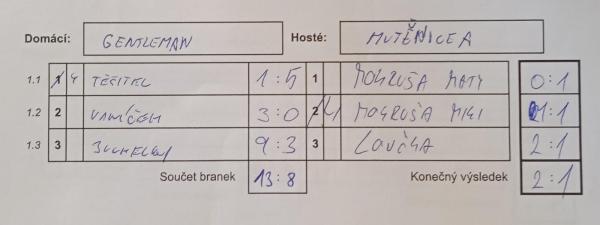 Domácí: GENTLEMAN Hosté: MUTĚNICE A
1.1 1 4 TĚŠITEL 1:5 1 MOKRUŠA MATY 0:1
1.2 2 3:0 2 4 MOKRUŠA MIKI 1:1
1.3 3 9:3 3 LOVČKA 2:1
Součet branek 13:8 Konečný výsledek 2:1